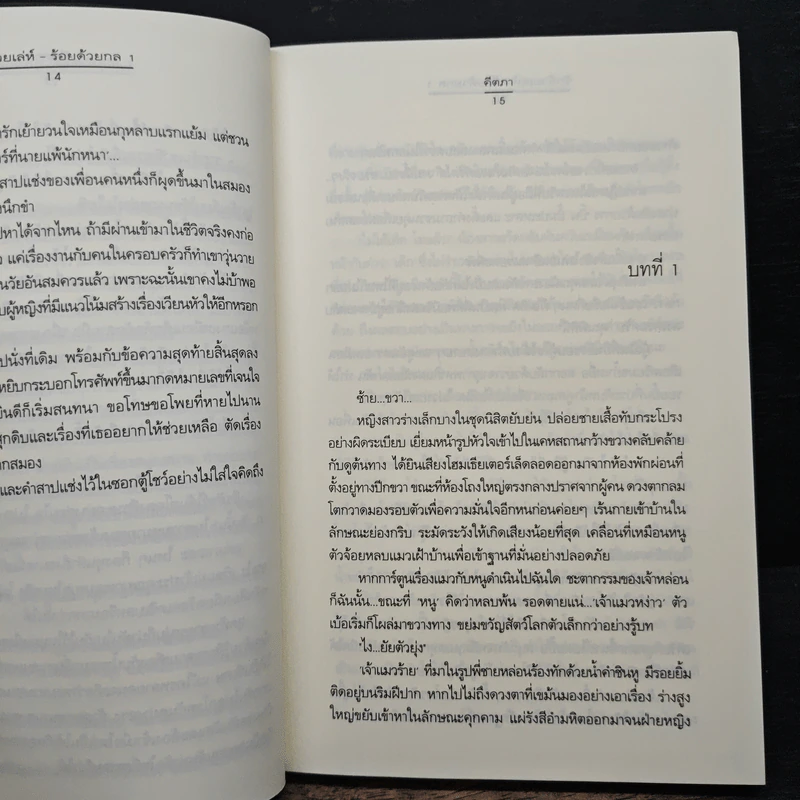 ยเล่ห์ - ร้อยด้วยกล 1
14
รักเย้ายวนใจเหมือนกุหลาบแรกแย้ม แต่ชวน
ร์ที่นายแพ้นักหนา'...
สาปแช่งของเพื่อนคนหนึ่งก็ผุดขึ้นมาในสมอง
นึกขำ
หาได้จากไหน ถ้ามีผ่านเข้ามาในชีวิตจริงคงก่อ
แค่เรื่องงานกับคนในครอบครัวก็ทำเขาวุ่นวาย
วัยอันสมควรแล้ว เพราะฉะนั้นเขาคงไม่บ้าพอ
ผู้หญิงที่มีแนวโน้มสร้างเรื่องเวียนหัวให้อีกหรอก
ปนั่งที่เดิม พร้อมกับข้อความสุดท้ายสิ้นสุดลง
หยิบกระบอกโทรศัพท์ขึ้นมากดหมายเลขที่เจนใจ
ยินดีก็เริ่มสนทนา ขอโทษขอโพยที่หายไปนาน
สุกดิบและเรื่องที่เธออยากให้ช่วยเหลือ ตัดเรื่อง
กสมอง
และคำสาปแช่งไว้ในซอกตู้โชว์อย่างไม่ใส่ใจคิดถึง
คีตภา
15
บทที่ 1
ซ้าย...ขวา...
หญิงสาวร่างเล็กบางในชุดนิสิตยับย่น ปล่อยชายเสื้อทับกระโปรง
อย่างผิดระเบียบ เยี่ยมหน้ารูปหัวใจเข้าไปในเคหสถานกว้างขวางคลับคล้าย
กับดูต้นทาง ได้ยินเสียงโฮมเธียเตอร์เล็ดลอดออกมาจากห้องพักผ่อนที่
ตั้งอยู่ทางปีกขวา ขณะที่ห้องโถงใหญ่ตรงกลางปราศจากผู้คน ดวงตากลม
โตกวาดมองรอบตัวเพื่อความมั่นใจอีกหนก่อนค่อยๆ เร้นกายเข้าบ้านใน
ลักษณะย่องกริบ ระมัดระวังให้เกิดเสียงน้อยที่สุด เคลื่อนที่เหมือนหนู
ตัวจ้อยหลบแมวเฝ้าบ้านเพื่อเข้าฐานที่มั่นอย่างปลอดภัย
หากการ์ตูนเรื่องแมวกับหนูดำเนินไปฉันใด ชะตากรรมของเจ้าหล่อน
ก็ฉันนั้น...ขณะที่ 'หนู' คิดว่าหลบพ้น รอดตายแน่...'เจ้าแมวหง่าว' ตัว
เบ้อเริ่มก็โผล่มาขวางทาง ขย่มขวัญสัตว์โลกตัวเล็กกว่าอย่างรู้บท
"ไง...ยัยตัวยุ่ง"
'เจ้าแมวร้าย' ที่มาในรูปพี่ชายหล่อนร้องทักด้วยน้ำคำชินหู มีรอยยิ้ม
ติดอยู่บนริมฝีปาก หากไปไม่ถึงดวงตาที่เขม้นมองอย่างเอาเรื่อง ร่างสูง
ใหญ่ขยับเข้าหาในลักษณะคุกคาม แผ่รังสีอำมหิตออกมาจนฝ่ายหญิง